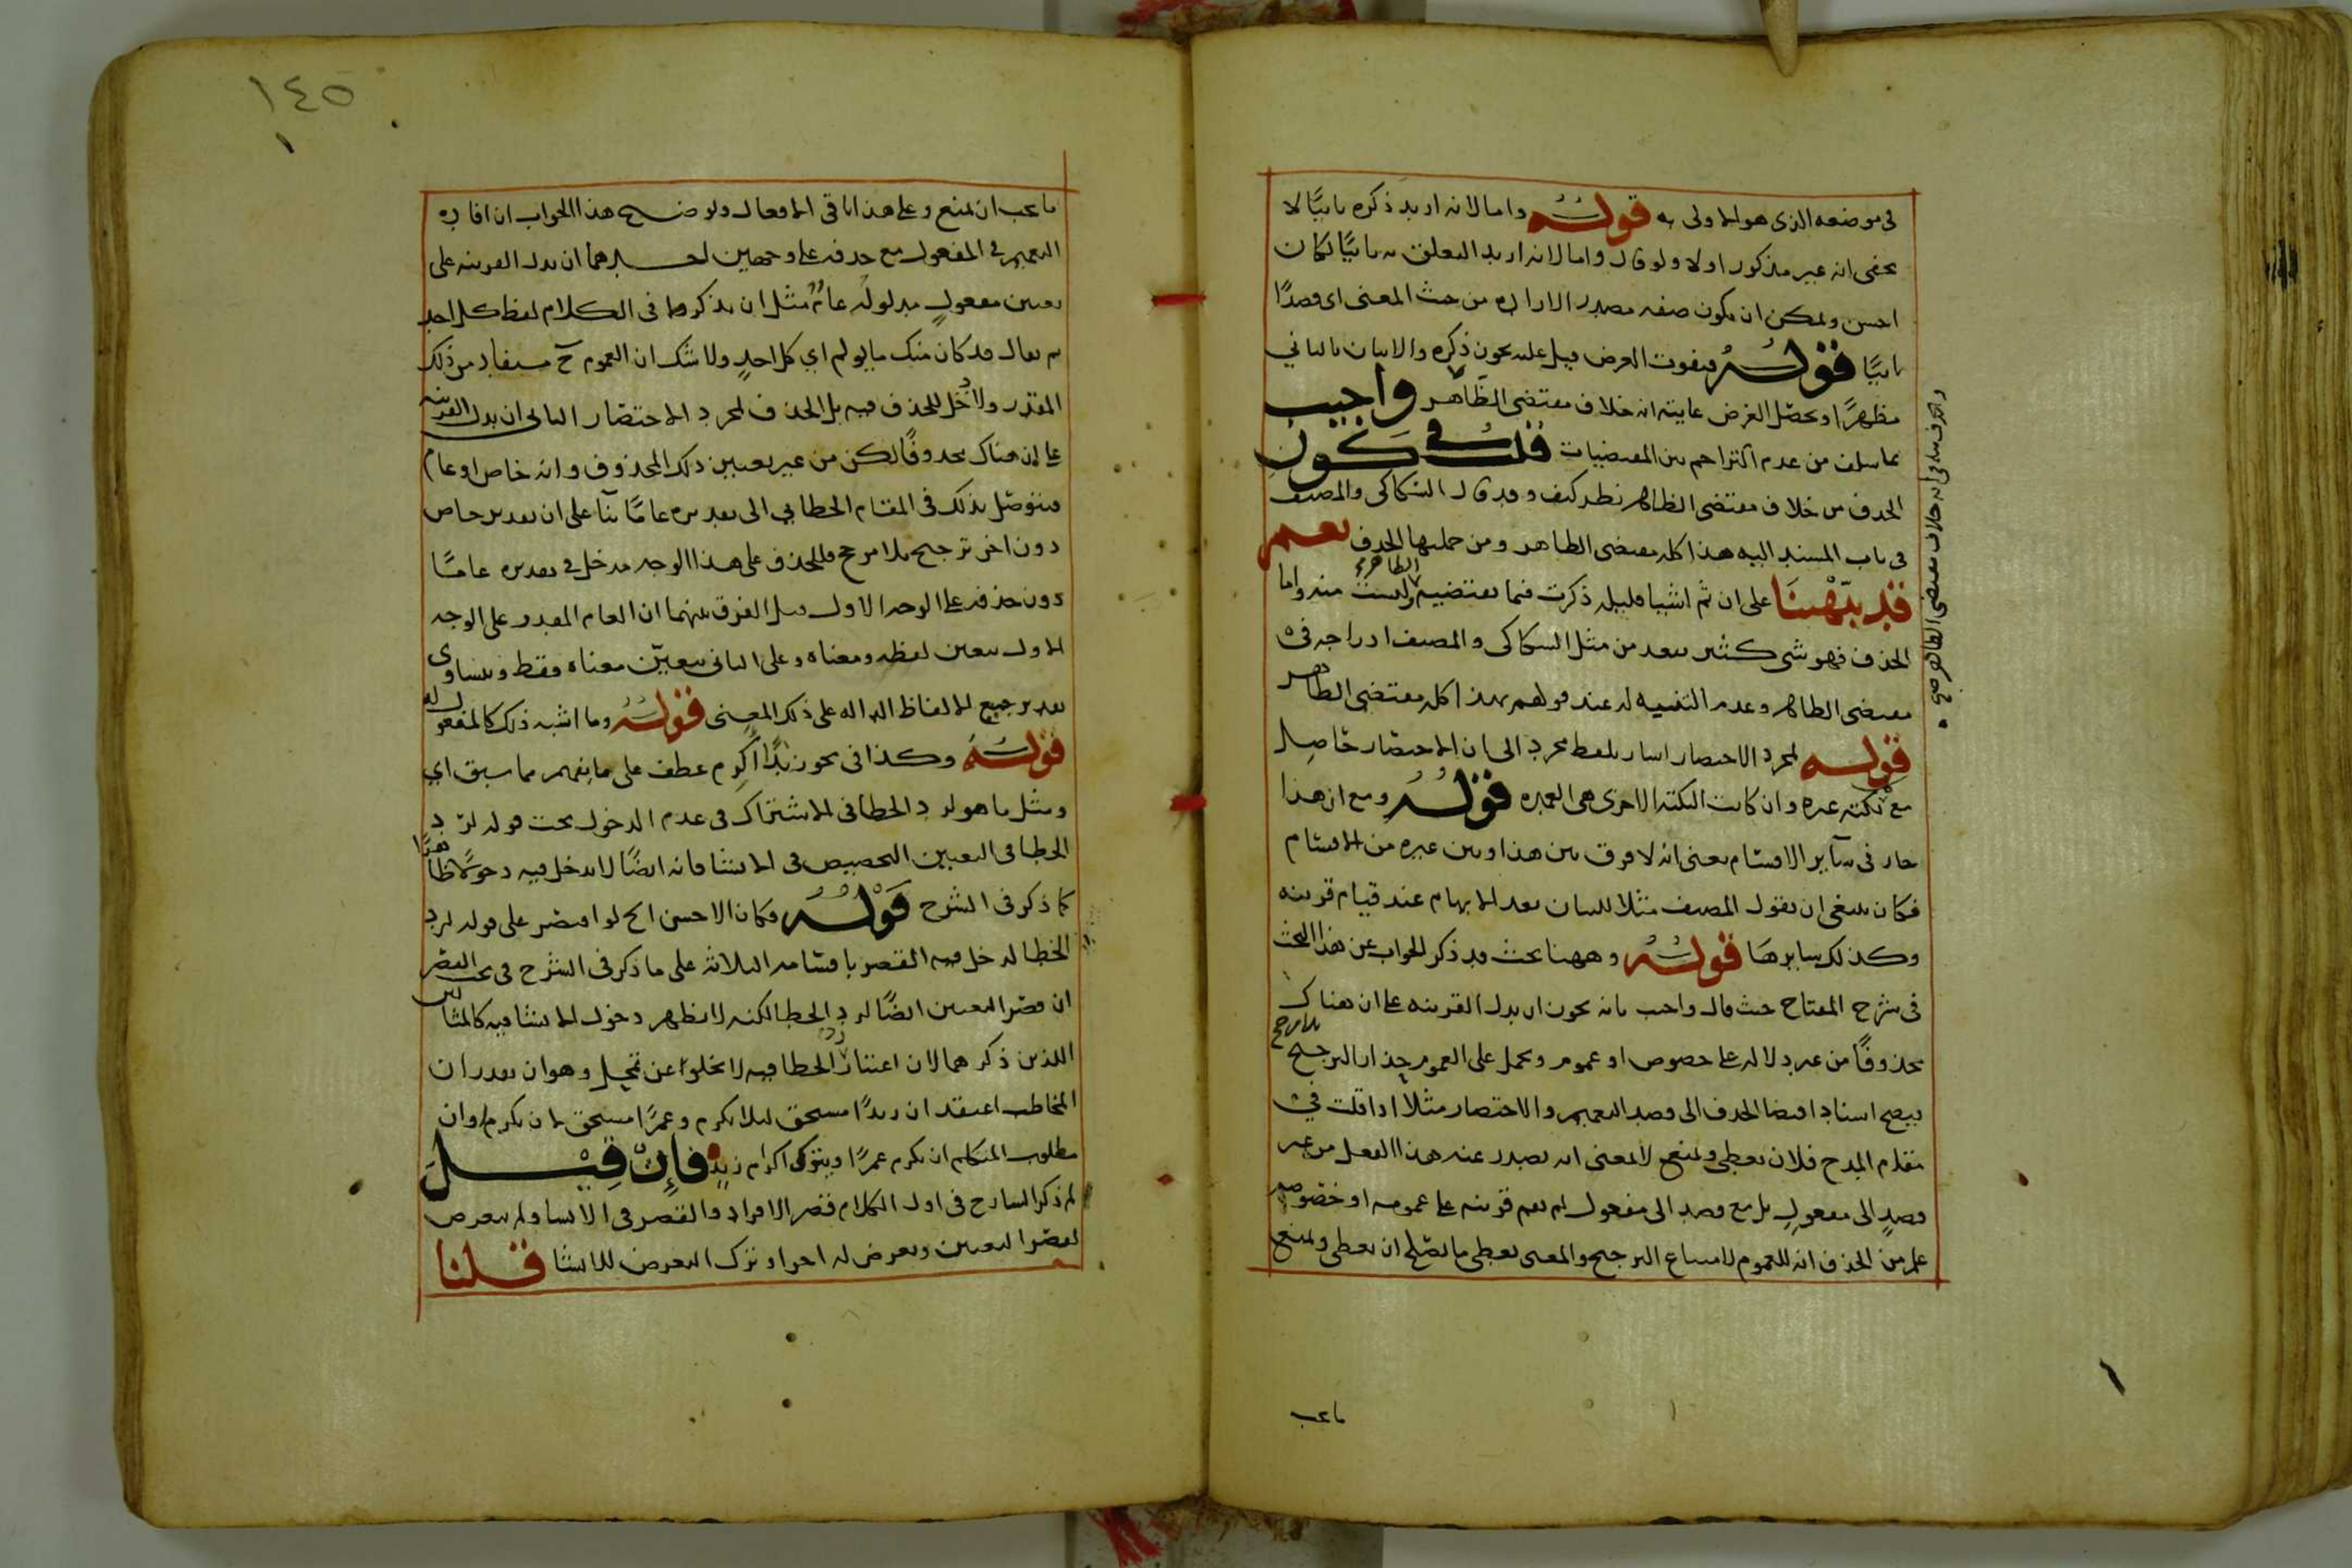 في موضعه الذي هو الاولى به قوله واما لانه اريد ذكره ثانيًا لا
يخفى انه غير مذكور اولا ولو قال واما لانه اريد التعلق به ثانيًا لكان
احسن ويمكن ان يكون صفه مصدر الاراده من حيث المعنى اى قصدًا
ثانيًا قوله فيفوت الغرض قيل عليه يجوز ذكره والاتيان بالثاني
مظهرًا ويحصل الغرض غايته انه خلاف مقتضى الظاهر واجيب
بما سلف من عدم التزاحم بين المقتضيات قلت في كون
الحذف من خلاف مقتضى الظاهر نظر كيف وقد قال السكاكى والمصنف
فى باب المسند اليه هذا كله مقتضى الظاهر ومن جملتها الحذف نعم
قد نبهنا على ان ثم اشياء قليله ذكرت فيما يقتضيه الظاهر وليست منه واما
الحذف فهو شى كثير يبعد من مثل السكاكى والمصنف ادراجه فى
مقتضى الظاهر وعدم التنبيه له عند قولهم هذا كله مقتضى الظاهر
قوله لمجرد الاختصار اشار بلفظ مجرد الى ان الاختصار حاصل
مع نكته غيره وان كانت النكته الاخرى هى العمده قوله ومع ان هذا
جار فى ساير الاقسام يعنى انه لا فرق بين هذا وبين غيره من الاقسام
فكان ينبغى ان يقول المصنف مثلا للبيان بعد الابهام عند قيام قرينه
وكذلك سايرها قوله وههنا بحث قد ذكر الجواب عن هذا البحث
فى شرح المفتاح حيث قال واجيب بانه يجوز ان يدل القرينه على ان هناك
محذوفًا من غير دلاله على خصوص او عموم ويحمل على العموم حذار الترجيح بلا مرجح
فيصح اسناد اقتضا الحذف الى قصد التعميم والاختصار مثلًا اذا قلت في
مقام المدح فلان يعطى ويمنع لا بمعنى انه يصدر عنه هذا الفعل من غير
قصدٍ الى مفعولٍ بل مع قصد الى مفعول لم يقم قرينه على عمومه او خصوصه
علم من الحذف انه للعموم لامتناع الترجيح والمعنى يعطى ما يصلح ان يعطى ويمنع
ما يجب
ما يجب ان يمنع وعلى هذا باقى الافعال وتوضيح هذا الجواب ان افاده
التعميم في المفعول مع حذفه على وجهين احدهما ان يدل القرينه على
تعيين مفعولٍ مدلوله عام مثل ان يذكر ما فى الكلام لفظ كل احد
ثم يقال قد كان منك ما يولم اي كل احدٍ ولا شك ان العموم ح مستفاد من ذلك
المقدر ولا دخل للحذف فيه بل الحذف لمجرد الاختصار الثانى ان يدل القرينه
على ان هناك محذوفًا لكن من غير تعيين ذلك المحذوف وانه خاص او عام
فيتوصل بذلك فى المقام الخطابي الى تقديره عامًا بنا على ان تقدير خاص
دون اخر ترجيح بلا مرجح فللحذف على هذا الوجه مدخل في تقديره عامًا
دون حذفه على الوجه الاول قيل الفرق بينهما ان العام المقدر على الوجه
الاول يتعين لفظه ومعناه وعلى الثانى يتعين معناه فقط ويتساوى
تقدير جميع الالفاظ الداله على ذلك المعنى قوله وما اشبه ذلك كالمفعول له
قوله وكذا فى نحو زيدًا اكرم عطف على ما يفهم مما سبق اي
ومثل ما هو لرد الخطا فى الاشتراك فى عدم الدخول تحت قوله لرد
الخطا فى التعيين التخصيص فى الانشا فانه ايضًا لا يدخل فيه دخولًا ظاهرًا
كما ذكر فى الشرح قوله فكان الاحسن الخ لو اقتصر على قوله لرد
الخطا لدخل فيه القصر باقسامه الثلاثه على ما ذكر فى الشرح فى بحث القصر
ان قصر التعيين ايضًا لرد الخطا لكنه لا يظهر دخول الانشا فيه كالمثالين
اللذين ذكرهما لان اعتبار رد الخطا فيه لا يخلو عن تمحل وهو ان يقدر ان
المخاطب اعتقد ان زيدًا مستحق لئلا يكرم وعمرًا مستحق لان يكرم وان
مطلوب المتكلم ان يكرم عمرًا ويترك اكرام زيد فإن قيل
لم ذكر الشارح فى اول الكلام قصر الافراد والقصر فى الانشا ولم يتعرض
لقصر التعيين وتعرض له اخرا وترك التعرض للانشا قلنا
١٤٥